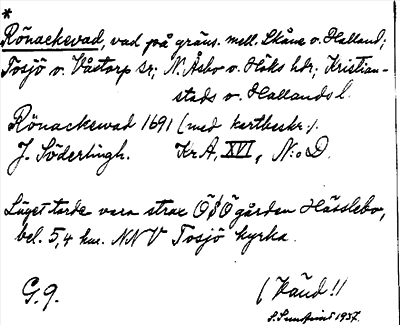 *
Rönackevad, vad på gräns. mell. Skåne o. Halland;
Tosjö o. Våxtorp sr; N. Åsbo o. Höks hdr; Kristian-
stads o. Hallands l.
Rönackewad 1691 (med kartbeskr.).
J. Söderlingh. Kr. A, XVI, N:o D.
Läget torde vara strax ÖSÖ gården Hässlebo,
bel. 5,4 km. NNV Tosjö kyrka.
G.9. (Vänd!)
S. Sundqvist 1937.